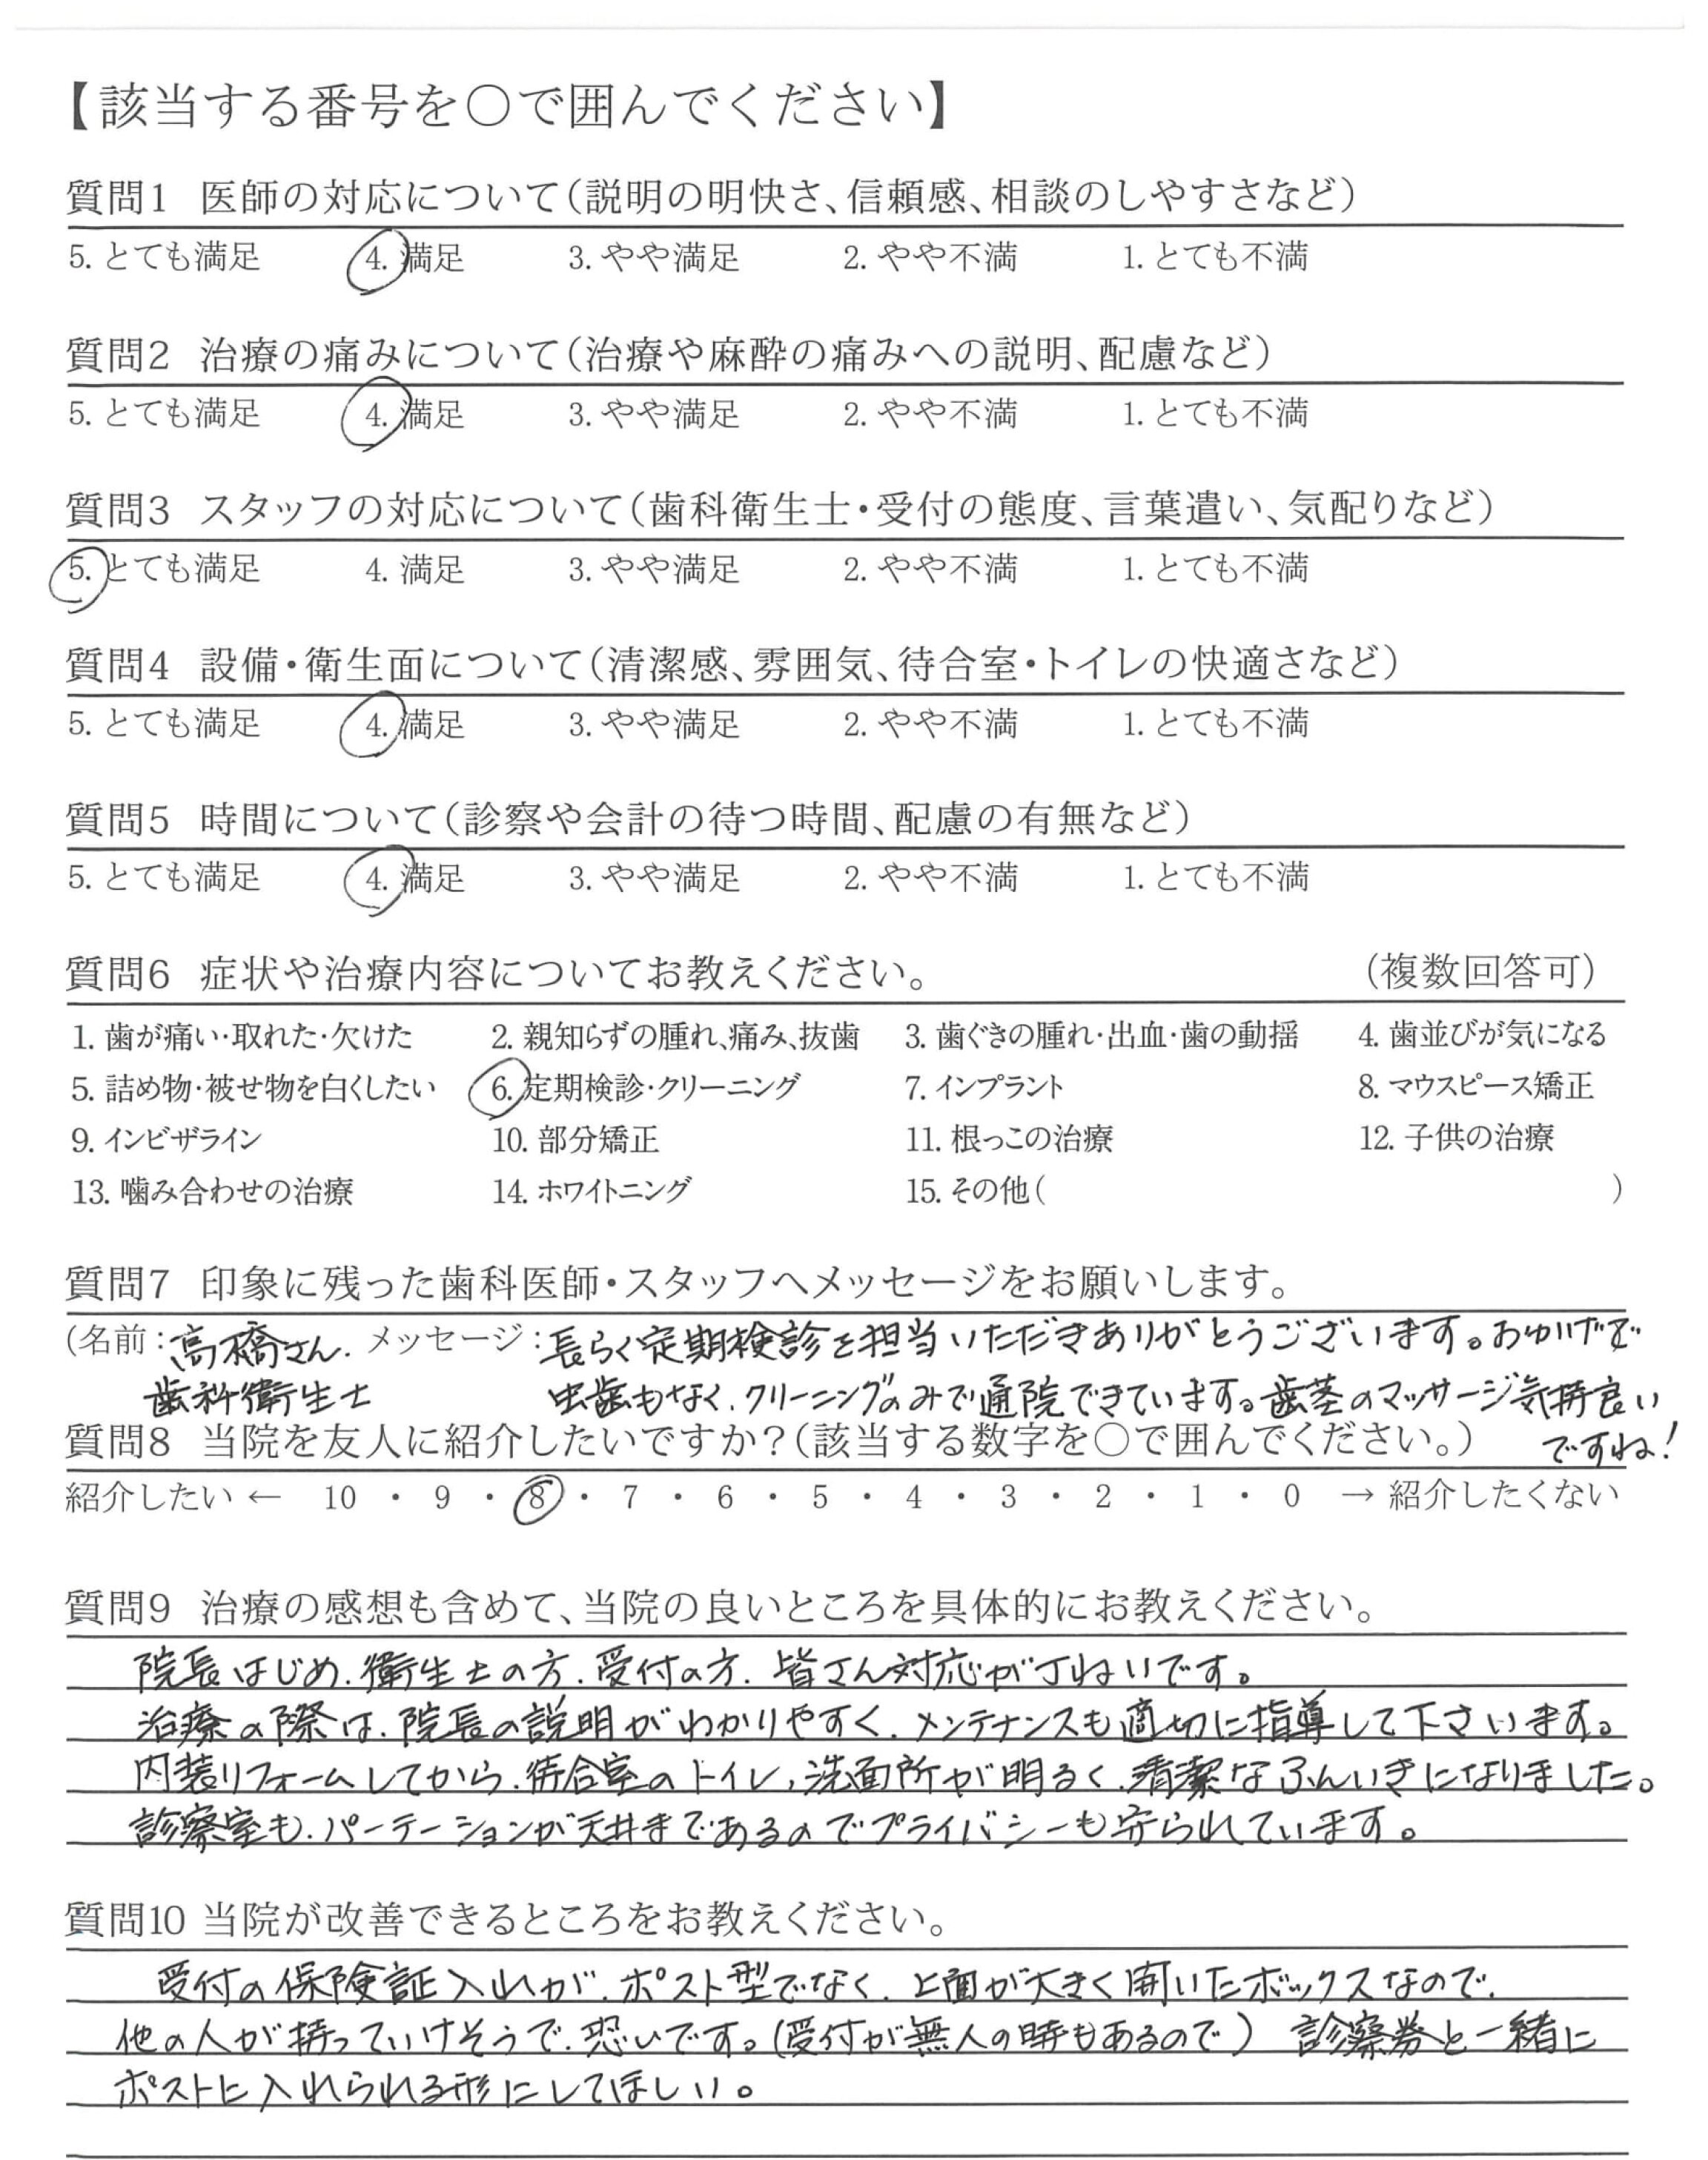 【該当する番号を○で囲んでください】
質問1 医師の対応について(説明の明快さ、信頼感、相談のしやすさなど)
5. とても満足 4. 満足 3. やや満足 2. やや不満 1. とても不満
質問2 治療の痛みについて(治療や麻酔の痛みへの説明、配慮など)
5. とても満足 4. 満足 3. やや満足 2. やや不満 1. とても不満
質問3 スタッフの対応について(歯科衛生士・受付の態度、言葉遣い、気配りなど)
5. とても満足 4. 満足 3. やや満足 2. やや不満 1. とても不満
質問4 設備・衛生面について(清潔感、雰囲気、待合室・トイレの快適さなど)
5. とても満足 4. 満足 3. やや満足 2. やや不満 1. とても不満
質問5 時間について(診察や会計の待つ時間、配慮の有無など)
5. とても満足 4. 満足 3. やや満足 2. やや不満 1. とても不満
質問6 症状や治療内容についてお教えください。 (複数回答可)
1. 歯が痛い・取れた・欠けた 2. 親知らずの腫れ、痛み、抜歯 3. 歯ぐきの腫れ・出血・歯の動揺 4. 歯並びが気になる
5. 詰め物・被せ物を白くしたい 6. 定期検診・クリーニング 7. インプラント 8. マウスピース矯正
9. インビザライン 10. 部分矯正 11. 根っこの治療 12. 子供の治療
13. 噛み合わせの治療 14. ホワイトニング 15. その他( )
質問7 印象に残った歯科医師・スタッフへメッセージをお願いします。
(名前:高橋さん. メッセージ:長らく定期検診を担当いただきありがとうございます。おかげで
歯科衛生士 虫歯もなく、クリーニングのみで通院できています。歯茎のマッサージ気持良い
ですね!
質問8 当院を友人に紹介したいですか?(該当する数字を○で囲んでください。)
紹介したい ← 10 ・ 9 ・ 8 ・ 7 ・ 6 ・ 5 ・ 4 ・ 3 ・ 2 ・ 1 ・ 0 → 紹介したくない
質問9 治療の感想も含めて、当院の良いところを具体的にお教えください。
院長はじめ、衛生士の方、受付の方、皆さん対応が丁ねいです。
治療の際は、院長の説明がわかりやすく、メンテナンスも適切に指導して下さいます。
内装リフォームしてから、待合室のトイレ、洗面所が明るく、清潔なふんいきになりました。
診察室も、パーテーションが天井まであるのでプライバシーも守られています。
質問10 当院が改善できるところをお教えください。
受付の保険証入れが、ポスト型でなく、上面が大きく開いたボックスなので、
他の人が持っていけそうで、恐いです。(受付が無人の時もあるので) 診察券と一緒に
ポストに入れられる形にしてほしい。